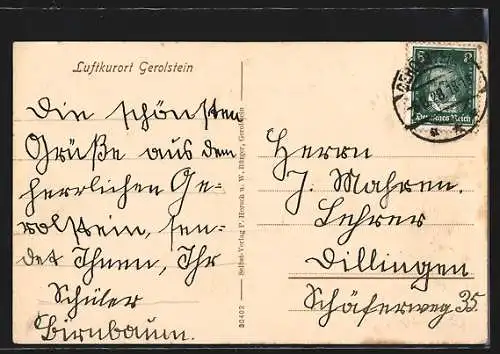 Luftkurort Gerolstein
Die schönsten
Grüße aus dem
herrlichen Ge-
rolstein, sen-
det Ihnen, Ihr
Schüler
Birnbaum.
Selbst-Verlag P. Horsch u. W. Bürger, Gerolstein
30402
Deutsches Reich
Herrn
J. Mahren.
Lehrer
Dillingen
Schäferweg 35.